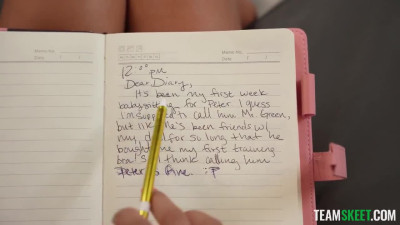 12:00 pm
Dear Diary,
It's been my first week
babysitting for Peter I guess
I'm supposed to call him Mr. Green,
but like he's been friends w/
my dad for so long that he
bought me my first training
bra! I think calling him
Peter is fine :P
TEAMSKEET.COM